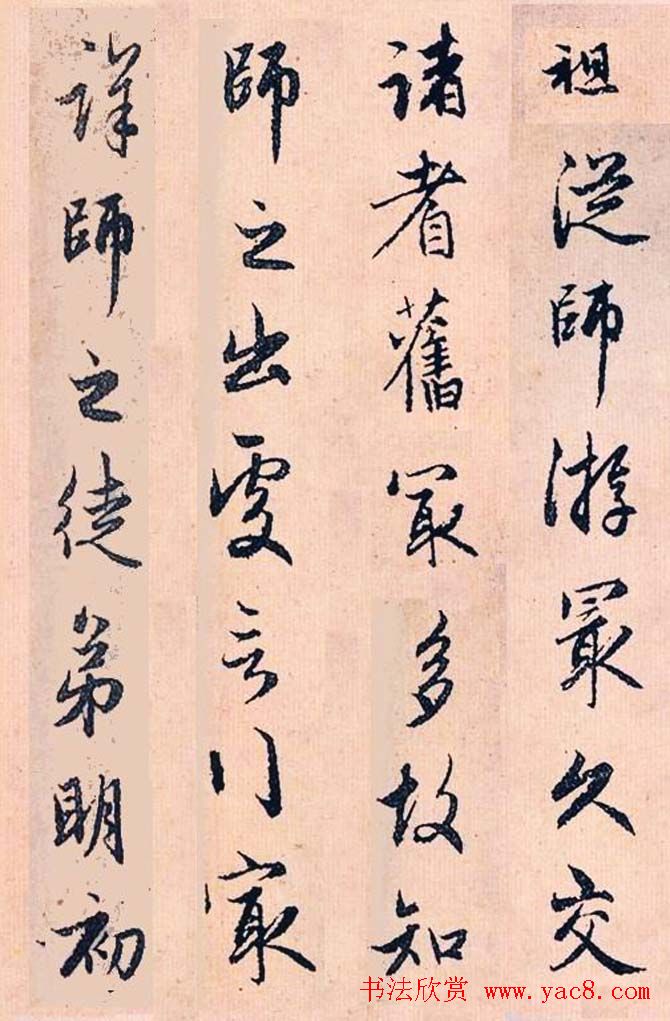 祖從師游最久交
諸耆舊最多故知
師之出處言行最
詳師之徒弟明初
书法欣赏 www.yac8.com